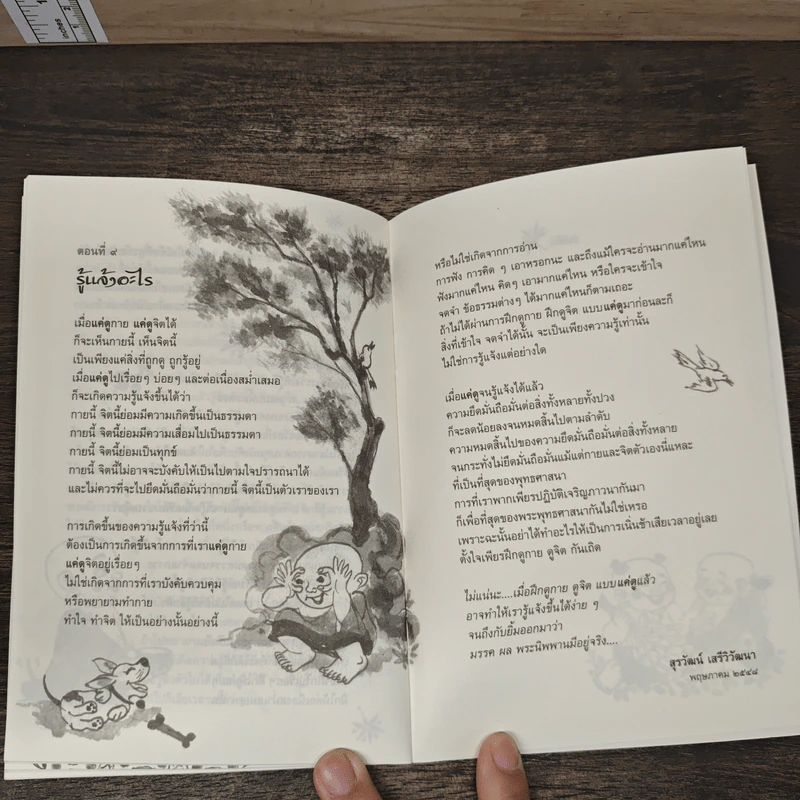 ตอนที่ ๙
รู้แจ้งอะไร
เมื่อแค่ดูกาย แค่ดูจิตได้
ก็จะเห็นกายนี้ เห็นจิตนี้
เป็นเพียงแค่สิ่งที่ถูกดู ถูกรู้อยู่
เมื่อแค่ดูไปเรื่อยๆ บ่อยๆ และต่อเนื่องสม่ำเสมอ
ก็จะเกิดความรู้แจ้งขึ้นได้ว่า
กายนี้ จิตนี้ย่อมมีความเกิดขึ้นเป็นธรรมดา
กายนี้ จิตนี้ย่อมมีความเสื่อมไปเป็นธรรมดา
กายนี้ จิตนี้ย่อมเป็นทุกข์
กายนี้ จิตนี้ไม่อาจจะบังคับให้เป็นไปตามใจปรารถนาได้
และไม่ควรที่จะไปยึดมั่นถือมั่นว่ากายนี้ จิตนี้เป็นตัวเราของเรา
การเกิดขึ้นของความรู้แจ้งที่ว่านี้
ต้องเป็นการเกิดขึ้นจากการที่เราแค่ดูกาย
แค่ดูจิตอยู่เรื่อยๆ
ไม่ใช่เกิดจากการที่เราบังคับควบคุม
หรือพยายามทำกาย
ทำใจ ทำจิต ให้เป็นอย่างนั้นอย่างนี้
หรือไม่ใช่เกิดจากการอ่าน
การฟัง การคิด ๆ เอาหรอกนะ และถึงแม้ใครจะอ่านมากแค่ไหน
ฟังมากแค่ไหน คิดๆ เอามากแค่ไหน หรือใครจะเข้าใจ
จดจำ ข้อธรรมต่างๆ ได้มากแค่ไหนก็ตามเถอะ
ถ้าไม่ได้ผ่านการฝึกดูกาย ฝึกดูจิต แบบแค่ดูมาก่อนละก็
สิ่งที่เข้าใจ จดจำได้นั้น จะเป็นเพียงความรู้เท่านั้น
ไม่ใช่การรู้แจ้งแต่อย่างใด
เมื่อแค่ดูจนรู้แจ้งได้แล้ว
ความยึดมั่นถือมั่นต่อสิ่งทั้งหลายทั้งปวง
ก็จะลดน้อยลงจนหมดสิ้นไปตามลำดับ
ความหมดสิ้นไปของความยึดมั่นถือมั่นต่อสิ่งทั้งหลาย
จนกระทั่งไม่ยึดมั่นถือมั่นแม้แต่กายและจิตตัวเองนี่แหละ
ที่เป็นที่สุดของพุทธศาสนา
การที่เราพากเพียรปฏิบัติเจริญภาวนากันมา
ก็เพื่อที่สุดของพระพุทธศาสนากันไม่ใช่เหรอ
เพราะฉะนั้นอย่าได้ทำอะไรให้เป็นการเนิ่นช้าเสียเวลาอยู่เลย
ตั้งใจเพียรฝึกดูกาย ดูจิต กันเถิด
ไม่แน่นะ....เมื่อฝึกดูกาย ดูจิต แบบแค่ดูแล้ว
อาจทำให้เรารู้แจ้งขึ้นได้ง่าย ๆ
จนถึงกับยิ้มออกมาว่า
มรรค ผล พระนิพพานมีอยู่จริง....
สุรวัฒน์ เสรีวิวัฒนา
พฤษภาคม ๒๕๔๘
inches
1
2